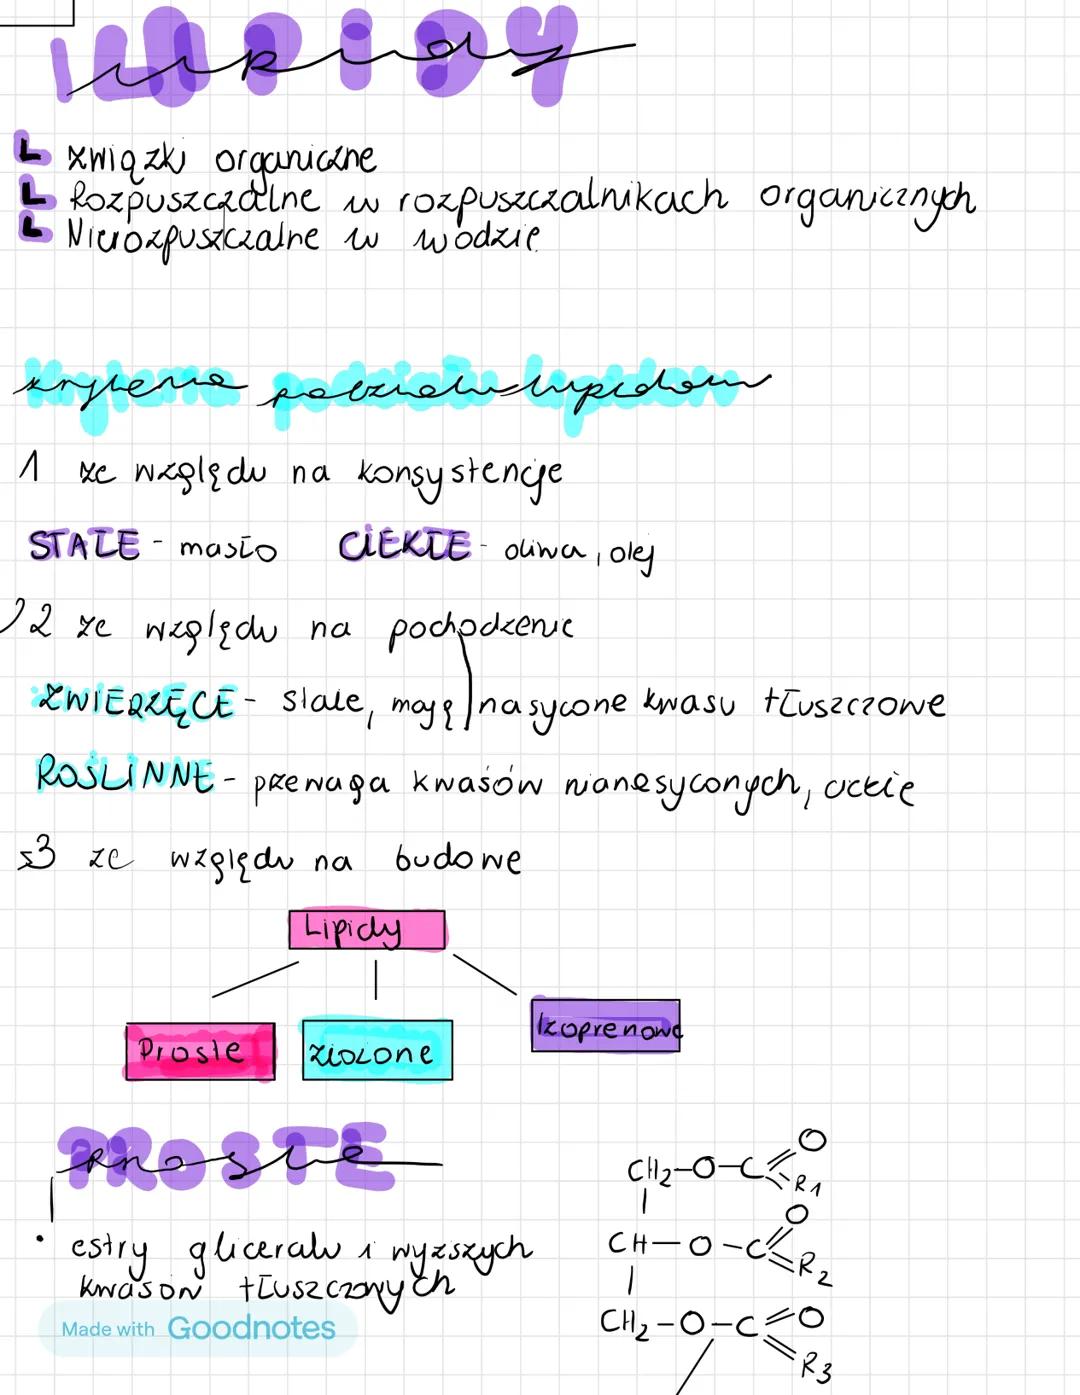 LIPIDY
lipidy
związki organiczne
Rozpuszczalne w rozpuszczalnikach organicznych
Nierozpuszczalne w wodzie
kryteria podziału lipidów
1 ze względu na konsystencję
STAŁE - masło CIEKŁE - oliwa, olej
2 ze względu na pochodzenie
ZWIERZĘCE - stałe, mają nasycone kwasu tłuszczowe
ROŚLINNE - przewaga kwasów nianasyconych, ciekłe
3 ze względu na budowę
Lipidy
Proste złożone Izoprenowe
PROSTE
proste
• estry glicerolu i wyższych
kwasów tłuszczowych
CH2-O-C=O
R1
CH-O-C=O
R2
CH2-O-C=O
R3
Made with Goodnotes